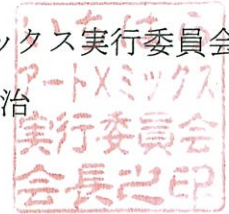 ックス実行委員会
治
いちはら
アート×ミックス
実行委員会
会長之印